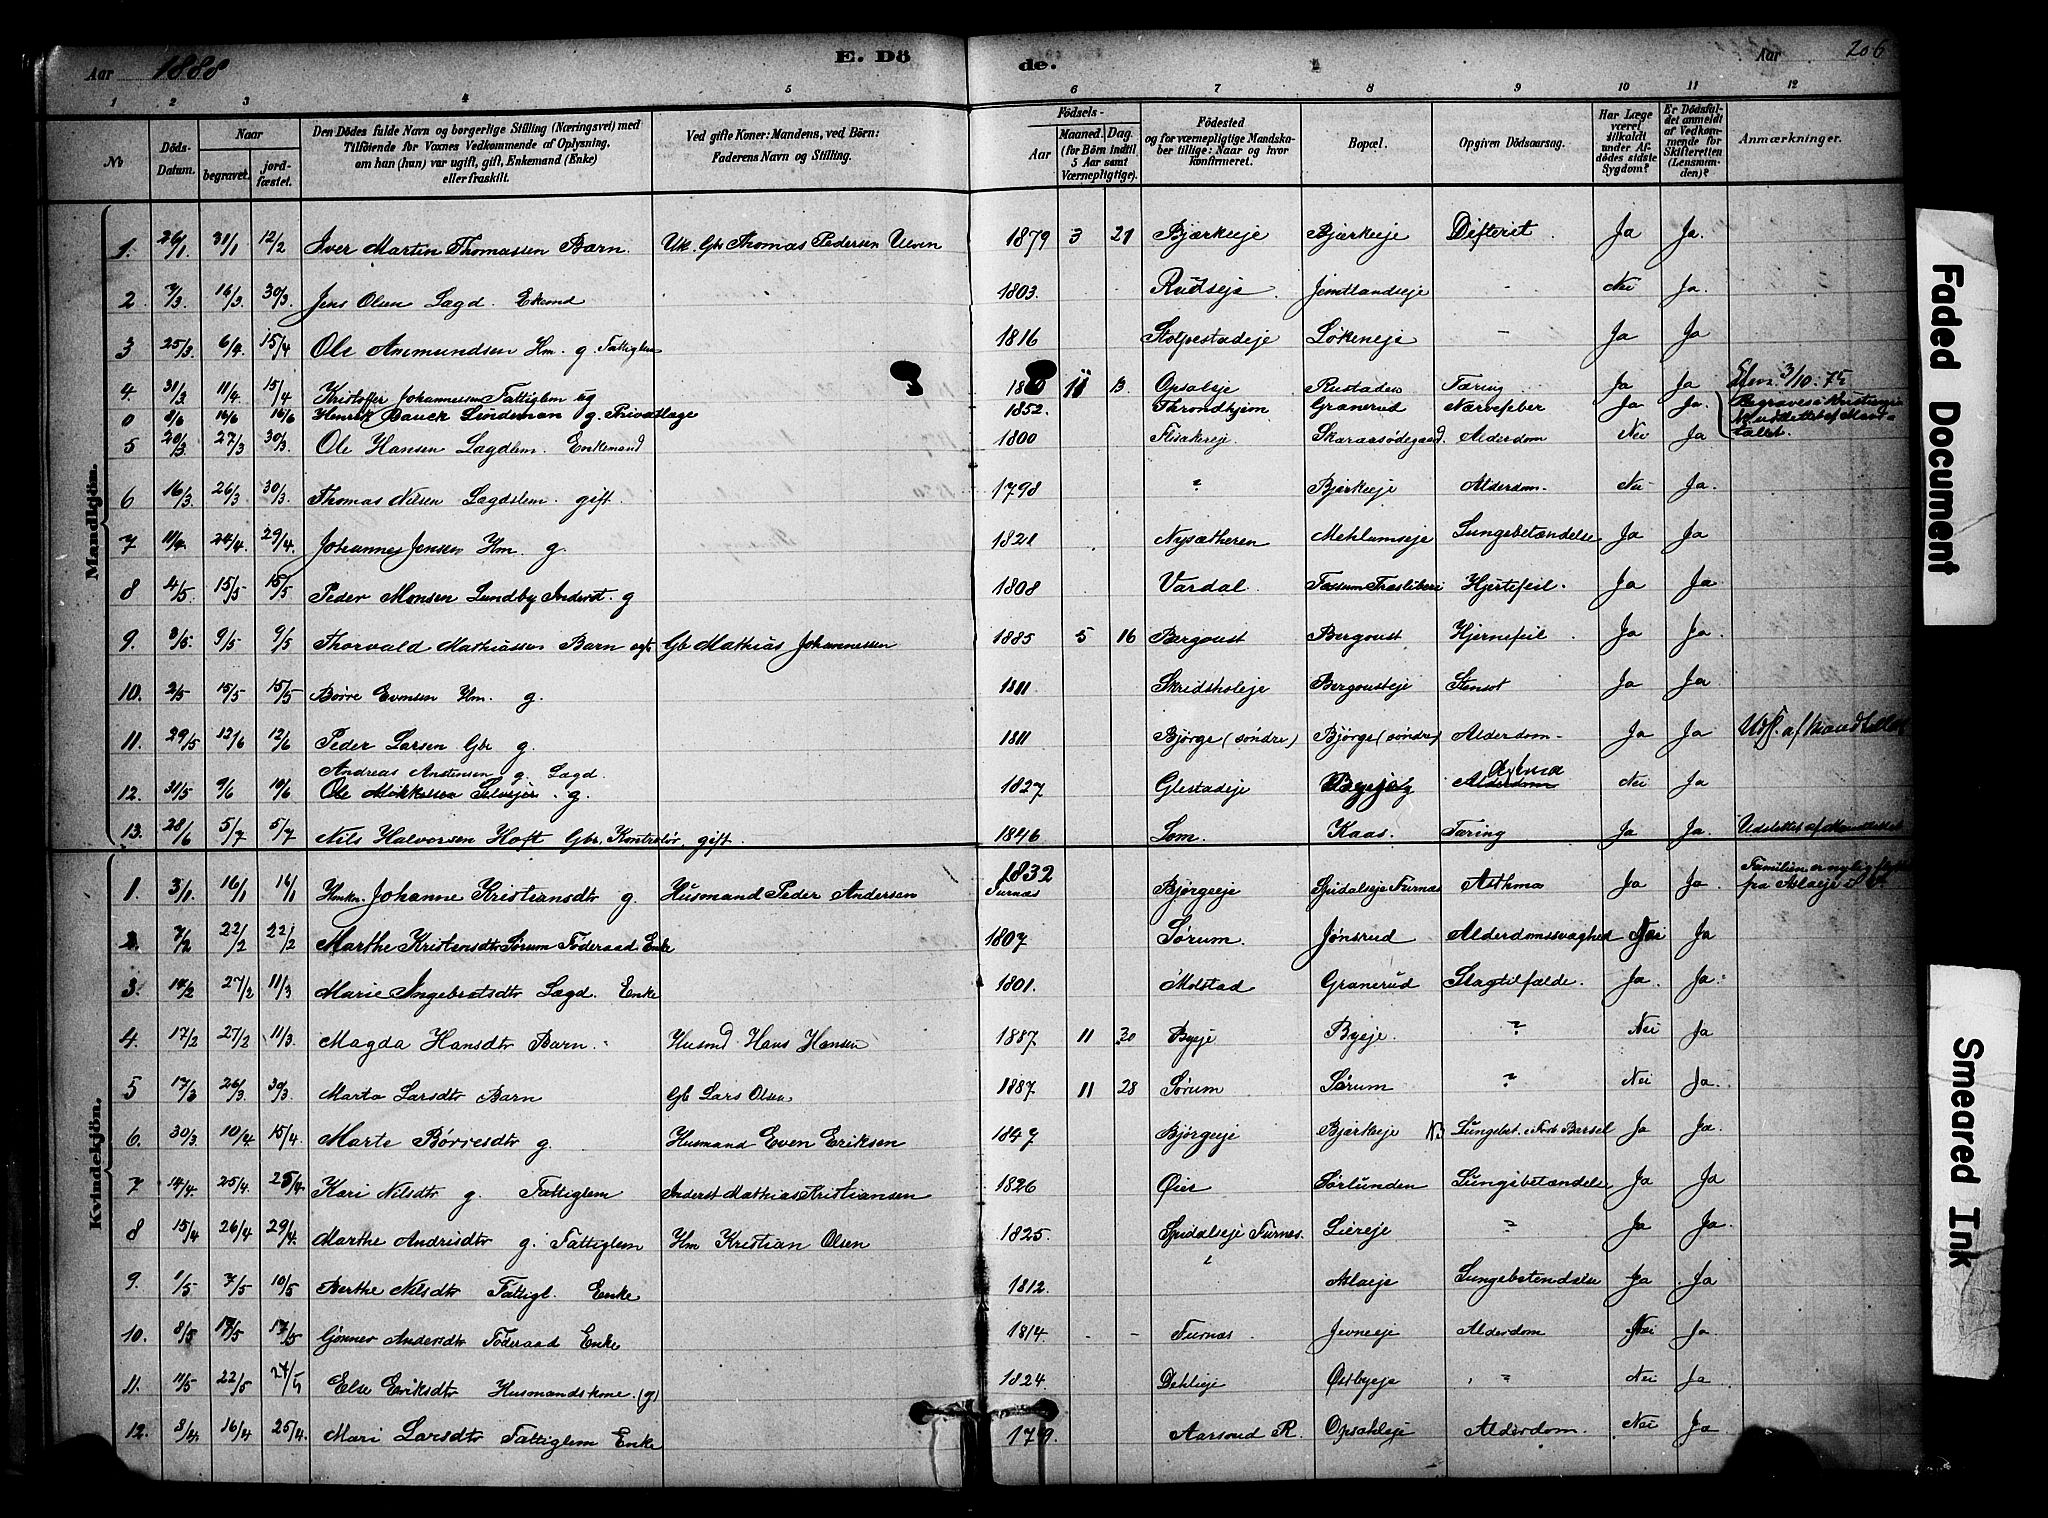 Aar 1888
E. Döde.
Aar
206
1 2 3 4 5 6 7 8 9 10 11 12
No
Döds-Datum.
Naar
begravet.
jordfæstet.
Den Dödes fulde Navn og borgerlige Stilling (Næringsvei) med
Tilföiende for Voxnes Vedkommende af Oplysning,
om han (hun) var ugift, gift, Enkemand (Enke)
eller fraskilt.
Ved gifte Koner: Mandens, ved Börn:
Faderens Navn og Stilling.
Födsels-
Aar
Maaned. Dag.
(for Börn indtil
5 Aar samt
Værnepligtige).
Födested
og for værnepligtige Mandskaber tillige: Naar og hvor
konfirmeret.
Bopæl.
Opgiven Dödsaarsag.
Har Læge
været
tilkaldt
under Afdödes sidste
Sygdom?
Er Dödsfaldet anmeldt
af Vedkommende for
Skifteretten
(Lensmanden)?
Anmærkninger.
Mandkjön.
1. 26/1 31/1 12/2 Iver Martin Thomassen Barn. Uk. Gbr Thomas Pedersen Ulven 1879 3 21 Bjærkeeje Bjærkeeje Difterit. Ja Ja.
2 7/3 16/3 30/3 Jens Olsen Lægd. Ekemd 1803. Rudseje Jemtlandseje - Nei Ja.
3 25/3 6/4 15/4 Ole Anmundsen Hm. g Fattiglem 1816 Stolpestadeje Løkeneje - Ja Ja
4. 31/3 11/4 15/4 Kristoffer Johannessen Fattiglem ug 11 13 Opsaleje Rustaden Tæring Ja Ja 3/10. 75
0 8/6 16/6 16/6 Henrik Bauck Lindeman g. Privatlæge 1852. Throndhjem Granerud Nervefeber Ja Ja. Begraves i Kristiania
5 20/3 27/3 30/3 Ole Hansen Lægdlem. Enkemand 1800 Flisakereje Skaraasødegaard Alderdom Nei Ja
6 16/3 26/3 30/3 Thomas Nilsen Lægdslem. gift. 1798 ? Bjørkeeje Alderdom. Nei Ja.
7 11/4 24/4. 29/4. Johannes Jensen Hm. g. 1821 Nysætheren Mehlumseje Lungebetændelse Ja Ja
8 4/5. 15/5 15/5 Peder Monsen Lundby Inderst. g 1808 Vardal. Fossum Træsliberi Hjertefeil. Ja Ja
9. 3/5. 9/5 9/5 Thorvald Mathiassen Barn egt. Gb Mathias Johannessen 1885 5 16 Bergoust Bergoust Hjernefeil. Ja Ja.
10. 2/5 15/5 15/5 Børe Evensen Hm. g. 1811 Skridsholeje Bergousteje Stensot Ja Ja.
11. 29/5 12/6 12/6 Peder Larsen Gbr g. 1811 Bjørge (søndre) Bjørge (søndre) Alderdom. Ja Ja. Uds. af Mandtallet
Andreas Anstensen g. Lægd.
12. 31/5 9/6 10/6 Ole Mikkelsen g. 1827 Glestadeje Byeje Astma Alderdom Nei Ja
13. 28/6 5/7 5/7 Nils Halvorsen Hoft Gbr. Kontrolør, gift. 1846 Lom. Kaas. Tæring Ja Ja. Udslettet af Mandtallet
Kvindekjön.
1. 3/1. 16/1 14/1 Hmkn. Johanne Kristiansdtr g Husmand Peder Andersen 1832 Furnæs Bjørgeeje Spidalseje Furnæs Asthma Ja Ja. Familien er nylig flyttet
fra Aslaeje
2. 7/2 22/2 22/2 Marthe Kristensdtr Sørum Føderaad Enke 1807 Sørum. Jønsrud Alderdomssvaghed Nei Ja
3. 14/2 27/2 11/3 Marie Ingebretsdtr Lægd. Enke 1801. Molstad Granerud Slagtilfælde. Ja. Ja.
4. 17/2 27/2 11/3 Magda Hansdtr Barn. Husmd Hans Hansen 1887 11 30 Byeje Byeje. ? Nei Ja
5 17/3 26/3 30/3 Marta Larsdtr Barn Gb Lars Olsen 1887. 11 28 Sørum Sørum ? Nei Ja.
6. 30/3 10/4 15/4. Marte Børresdtr g. Husmand Even Eriksen 1847 Bjørgeeje Bjørkeeje NB Lungebet. Barsel Ja Ja.
7 14/4. 25/4. 25/4. Kari Nilsdtr g. Fattiglem Inderst Mathias Kristiansen 1826 Øier Sørlunden Lungebetændelse Ja Ja
8 15/4 26/4 29/4. Marthe Andrisdtr g. Fattiglem Hm Kristian Olsen 1825. Spidalseje Furnæs. Liereje ? Ja Ja.
9. 1/5 7/5 10/5 Berthe Nilsdtr Fattigl. Enke 1812. Aslaeje Lungebetendelse Ja Ja
10. 8/5 17/5 17/5 Gønner Andersdtr Føderaad Enke 1814 - - Furnæs. Jevneeje Alderdom Nei Ja
11. 11/5 22/5 27/5 Else Eriksdtr Husmandskone. (g) 1824. Dehlieje Østbyeje ? Nei Ja
12. 3/4 16/4 25/4. Mari Larsdtr Fattiglem Enke Aarsoud R. Opsahleje Alderdom. Nei Ja
Faded Document
Smeared Ink